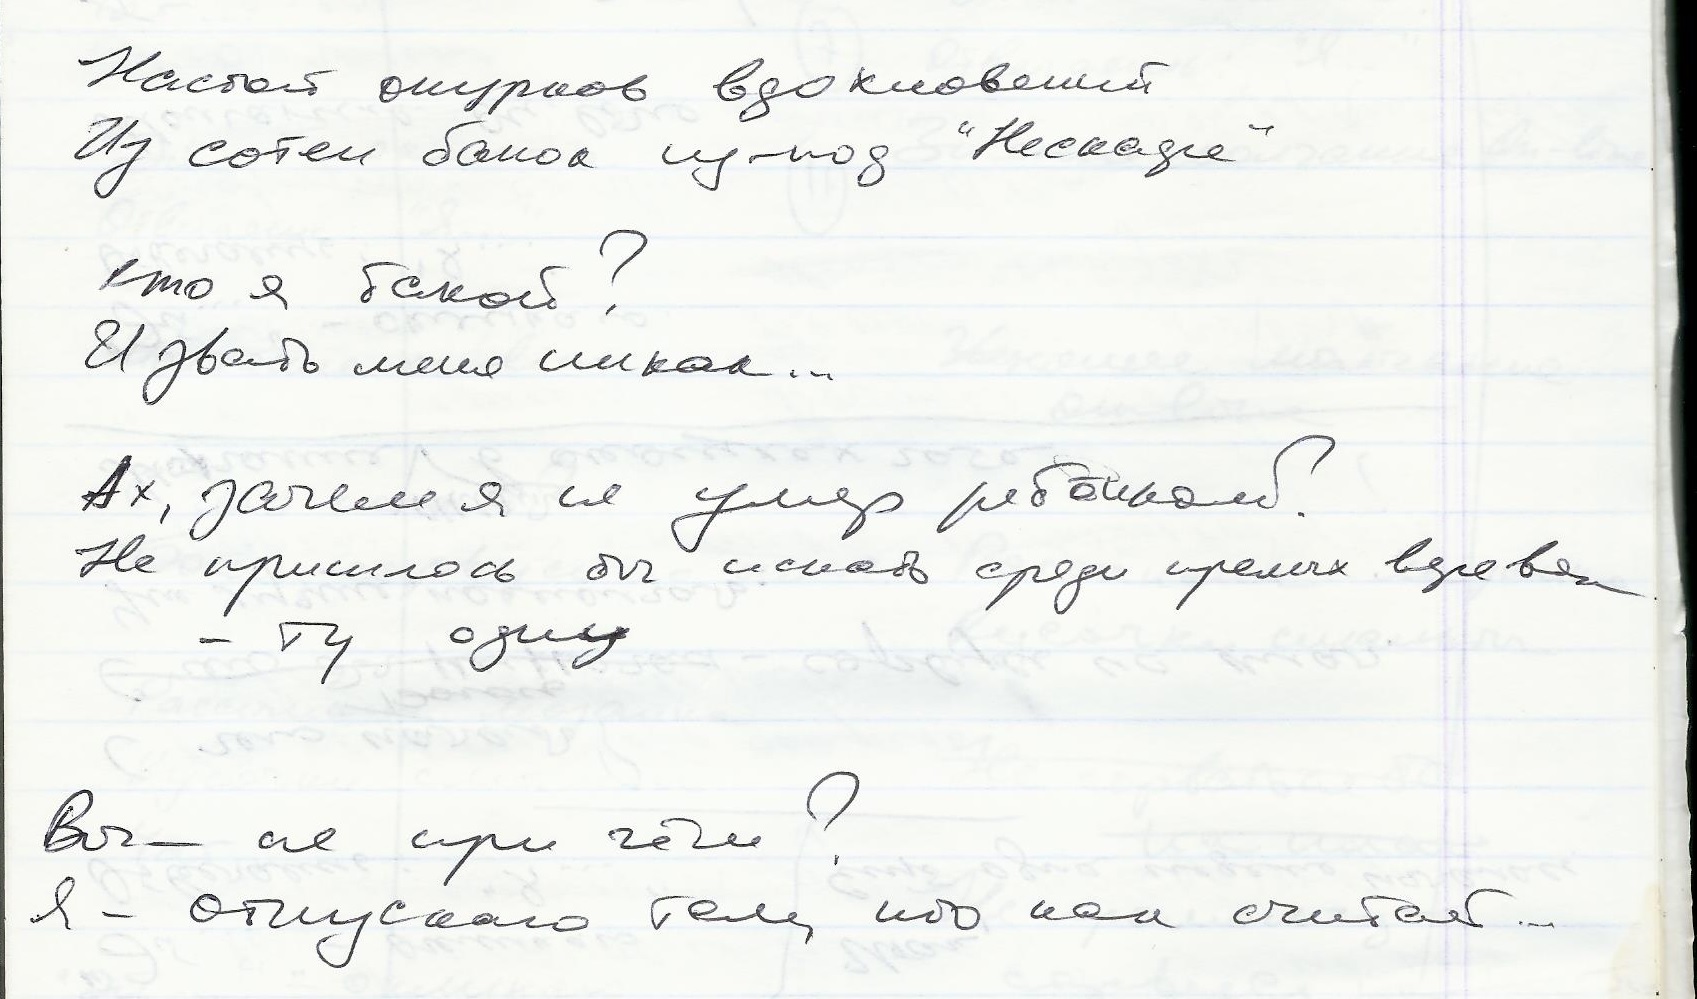 Настой окурков вдохновений
Из сотен банок из-под "Нескафе"
Кто я такой?
И звать меня никак...
Ах, зачем я не умер ребёнком?
Не пришлось бы искать среди прелых веревок
- ту одну
Вы — не при чём?
Я - отпускаю тем, кто как считает...